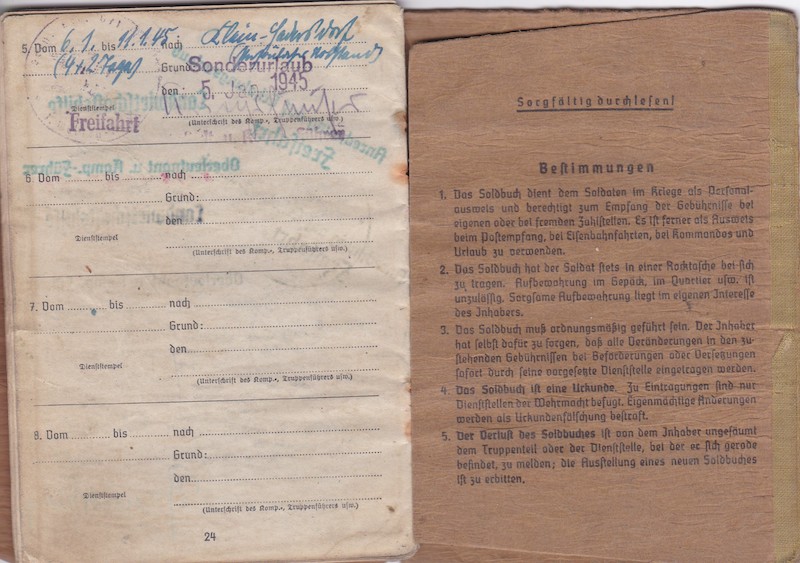 5. Vom 6.1. bis 11.1.45 nach Klein-Hadersdorf
(4 + 2 Tage) Grund:
Sonderurlaub
den: 5. Jan. 1945
Dienststempel
Freifahrt
(Unterschrift des Komp.-, Truppenführers usw.)
Oberleutnant u. Komp.-Führer
6 Vom bis nach
Grund:
den
Dienststempel
(Unterschrift des Komp.-, Truppenführers usw.)
7. Vom bis nach
Grund:
den
Dienststempel
(Unterschrift des Komp.-, Truppenführers usw.)
8. Vom bis nach
Grund:
den
Dienststempel
(Unterschrift des Komp.-, Truppenführers usw.)
24
Sorgfältig durchlesen!
Bestimmungen
1. Das Soldbuch dient dem Soldaten im Kriege als Personal-
ausweis und berechtigt zum Empfang der Gebührnisse bei
eigenen oder bei fremden Zahlstellen. Es ist ferner als Ausweis
beim Postempfang, bei Eisenbahnfahrten, bei Kommandos und
Urlaub zu verwenden.
2. Das Soldbuch hat der Soldat stets in einer Rocktasche bei sich
zu tragen. Aufbewahrung im Gepäck, im Quartier usw. ist
unzulässig. Sorgsame Aufbewahrung liegt im eigenen Interesse
des Inhabers.
3. Das Soldbuch muß ordnungsmäßig geführt sein. Der Inhaber
hat selbst dafür zu sorgen, daß alle Veränderungen in den zu-
stehenden Gebührnissen bei Beförderungen oder Versetzungen
sofort durch seine vorgesetzte Dienststelle eingetragen werden.
4. Das Soldbuch ist eine Urkunde. Zu Eintragungen sind nur
Dienststellen der Wehrmacht befugt. Eigenmächtige Änderungen
werden als Urkundenfälschung bestraft.
5. Der Verlust des Soldbuches ist von dem Inhaber ungesäumt
dem Truppenteil oder der Dienststelle, bei der er sich gerade
befindet, zu melden; die Ausstellung eines neuen Soldbuches
ist zu erbitten.